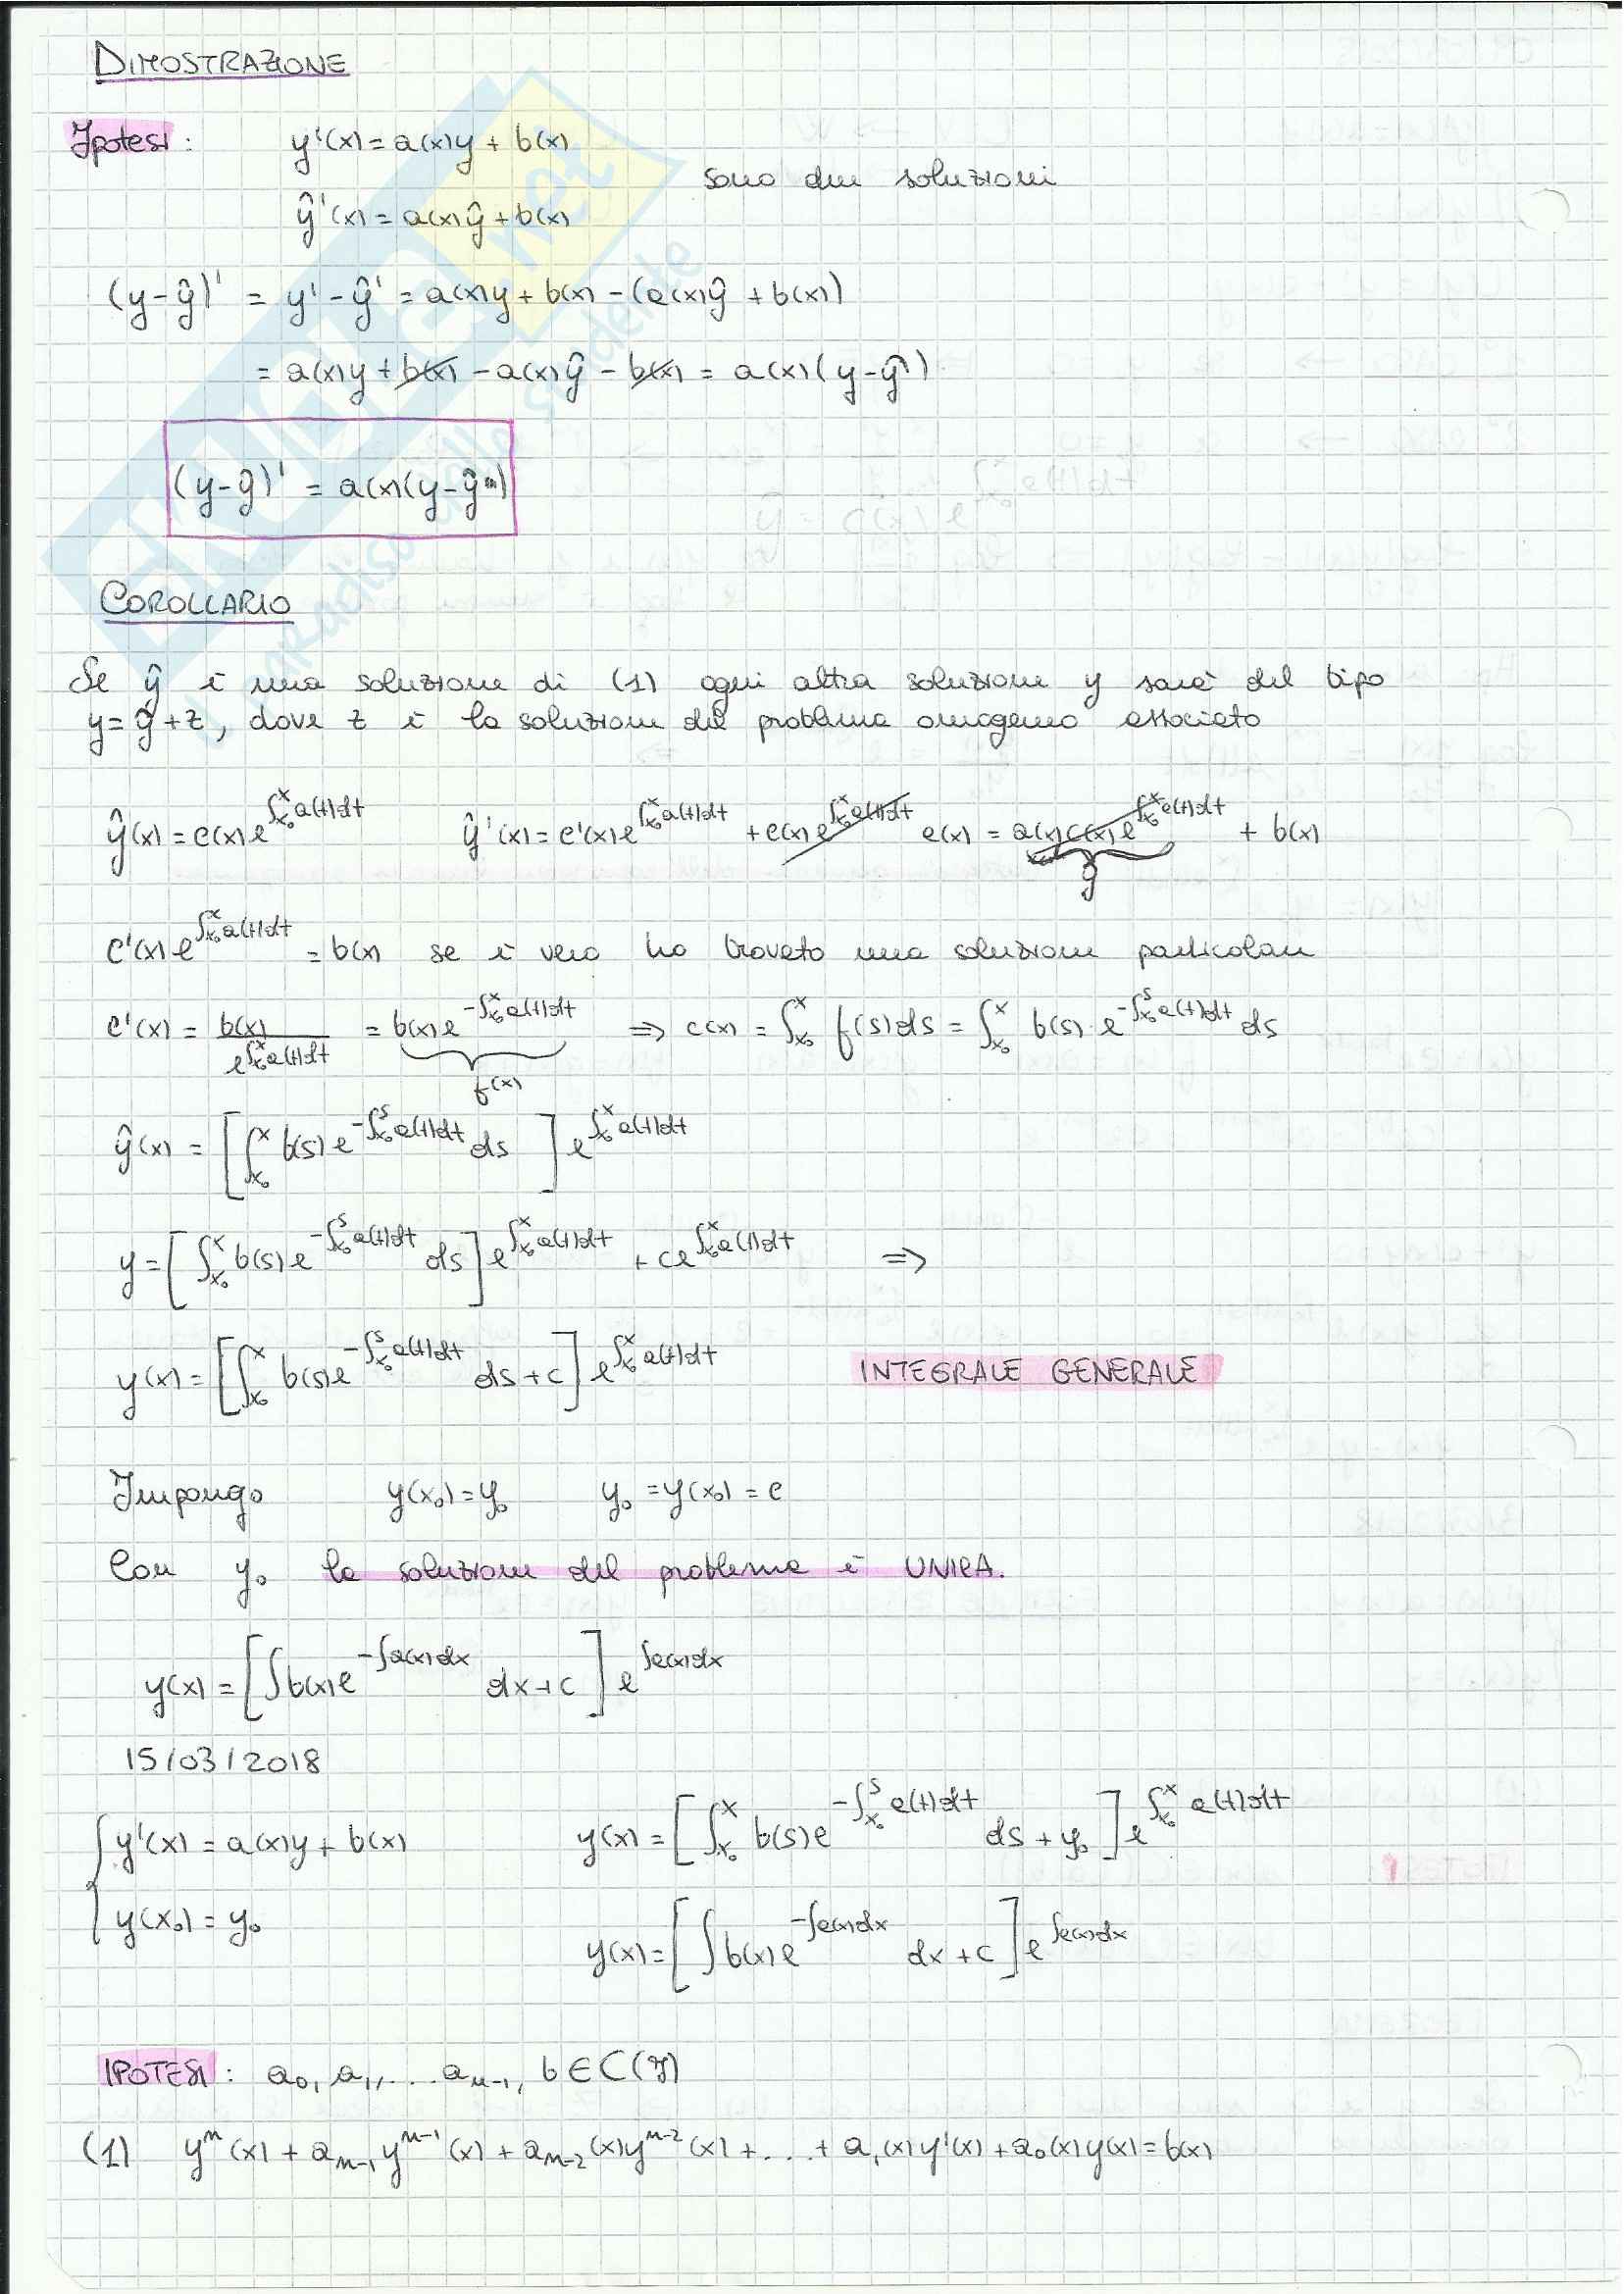 DIMOSTRAZIONE
Ipotesi: y'(x) = a(x)y + b(x)
sono due soluzioni
ŷ'(x) = a(x)ŷ + b(x)
(y-ŷ)' = y' - ŷ' = a(x)y + b(x) - (a(x)ŷ + b(x))
= a(x)y + b(x) - a(x)ŷ - b(x) = a(x)(y-ŷ)
(y-ŷ)' = a(x)(y-ŷ)
COROLLARIO
Se ŷ è una soluzione di (1) ogni altra soluzione y sarà del tipo
y = ŷ + z, dove z è la soluzione del problema omogeneo associato
ŷ(x) = c(x) e^{∫_{x₀}^{x} a(t)dt}   ŷ'(x) = c'(x) e^{∫_{x₀}^{x} a(t)dt} + c(x) e^{∫_{x₀}^{x} a(t)dt} a(x) = a(x) c(x) e^{∫_{x₀}^{x} a(t)dt} + b(x)
ŷ
c'(x) e^{∫_{x₀}^{x} a(t)dt} = b(x) se è vero ho trovato una soluzione particolare
c'(x) = b(x) / e^{∫_{x₀}^{x} a(t)dt} = b(x) e^{-∫_{x₀}^{x} a(t)dt} ⇒ c(x) = ∫_{x₀}^{x} f(s)ds = ∫_{x₀}^{x} b(s)·e^{-∫_{x₀}^{s} a(t)dt} ds
f(x)
ŷ(x) = [∫_{x₀}^{x} b(s) e^{-∫_{x₀}^{s} a(t)dt} ds] e^{∫_{x₀}^{x} a(t)dt}
y = [∫_{x₀}^{x} b(s) e^{-∫_{x₀}^{s} a(t)dt} ds] e^{∫_{x₀}^{x} a(t)dt} + c e^{∫_{x₀}^{x} a(t)dt} ⇒
y(x) = [∫_{x₀}^{x} b(s) e^{-∫_{x₀}^{s} a(t)dt} ds + c] e^{∫_{x₀}^{x} a(t)dt}   INTEGRALE GENERALE
Impongo y(x₀) = y₀   y₀ = y(x₀) = c
Con y₀ la soluzione del problema è UNICA.
y(x) = [∫b(x) e^{-∫a(x)dx} dx + c] e^{∫a(x)dx}
15/03/2018
y'(x) = a(x)y + b(x)   y(x) = [∫_{x₀}^{x} b(s) e^{-∫_{x₀}^{s} a(t)dt} ds + y₀] e^{∫_{x₀}^{x} a(t)dt}
y(x₀) = y₀   y(x) = [∫b(x) e^{-∫a(x)dx} dx + c] e^{∫a(x)dx}
IPOTESI: a₀, a₁, ... aₙ₋₁, b ∈ C(I)
(1) yⁿ(x) + aₙ₋₁ yⁿ⁻¹(x) + aₙ₋₂(x) yⁿ⁻²(x) + ... + a₁(x) y'(x) + a₀(x) y(x) = b(x)